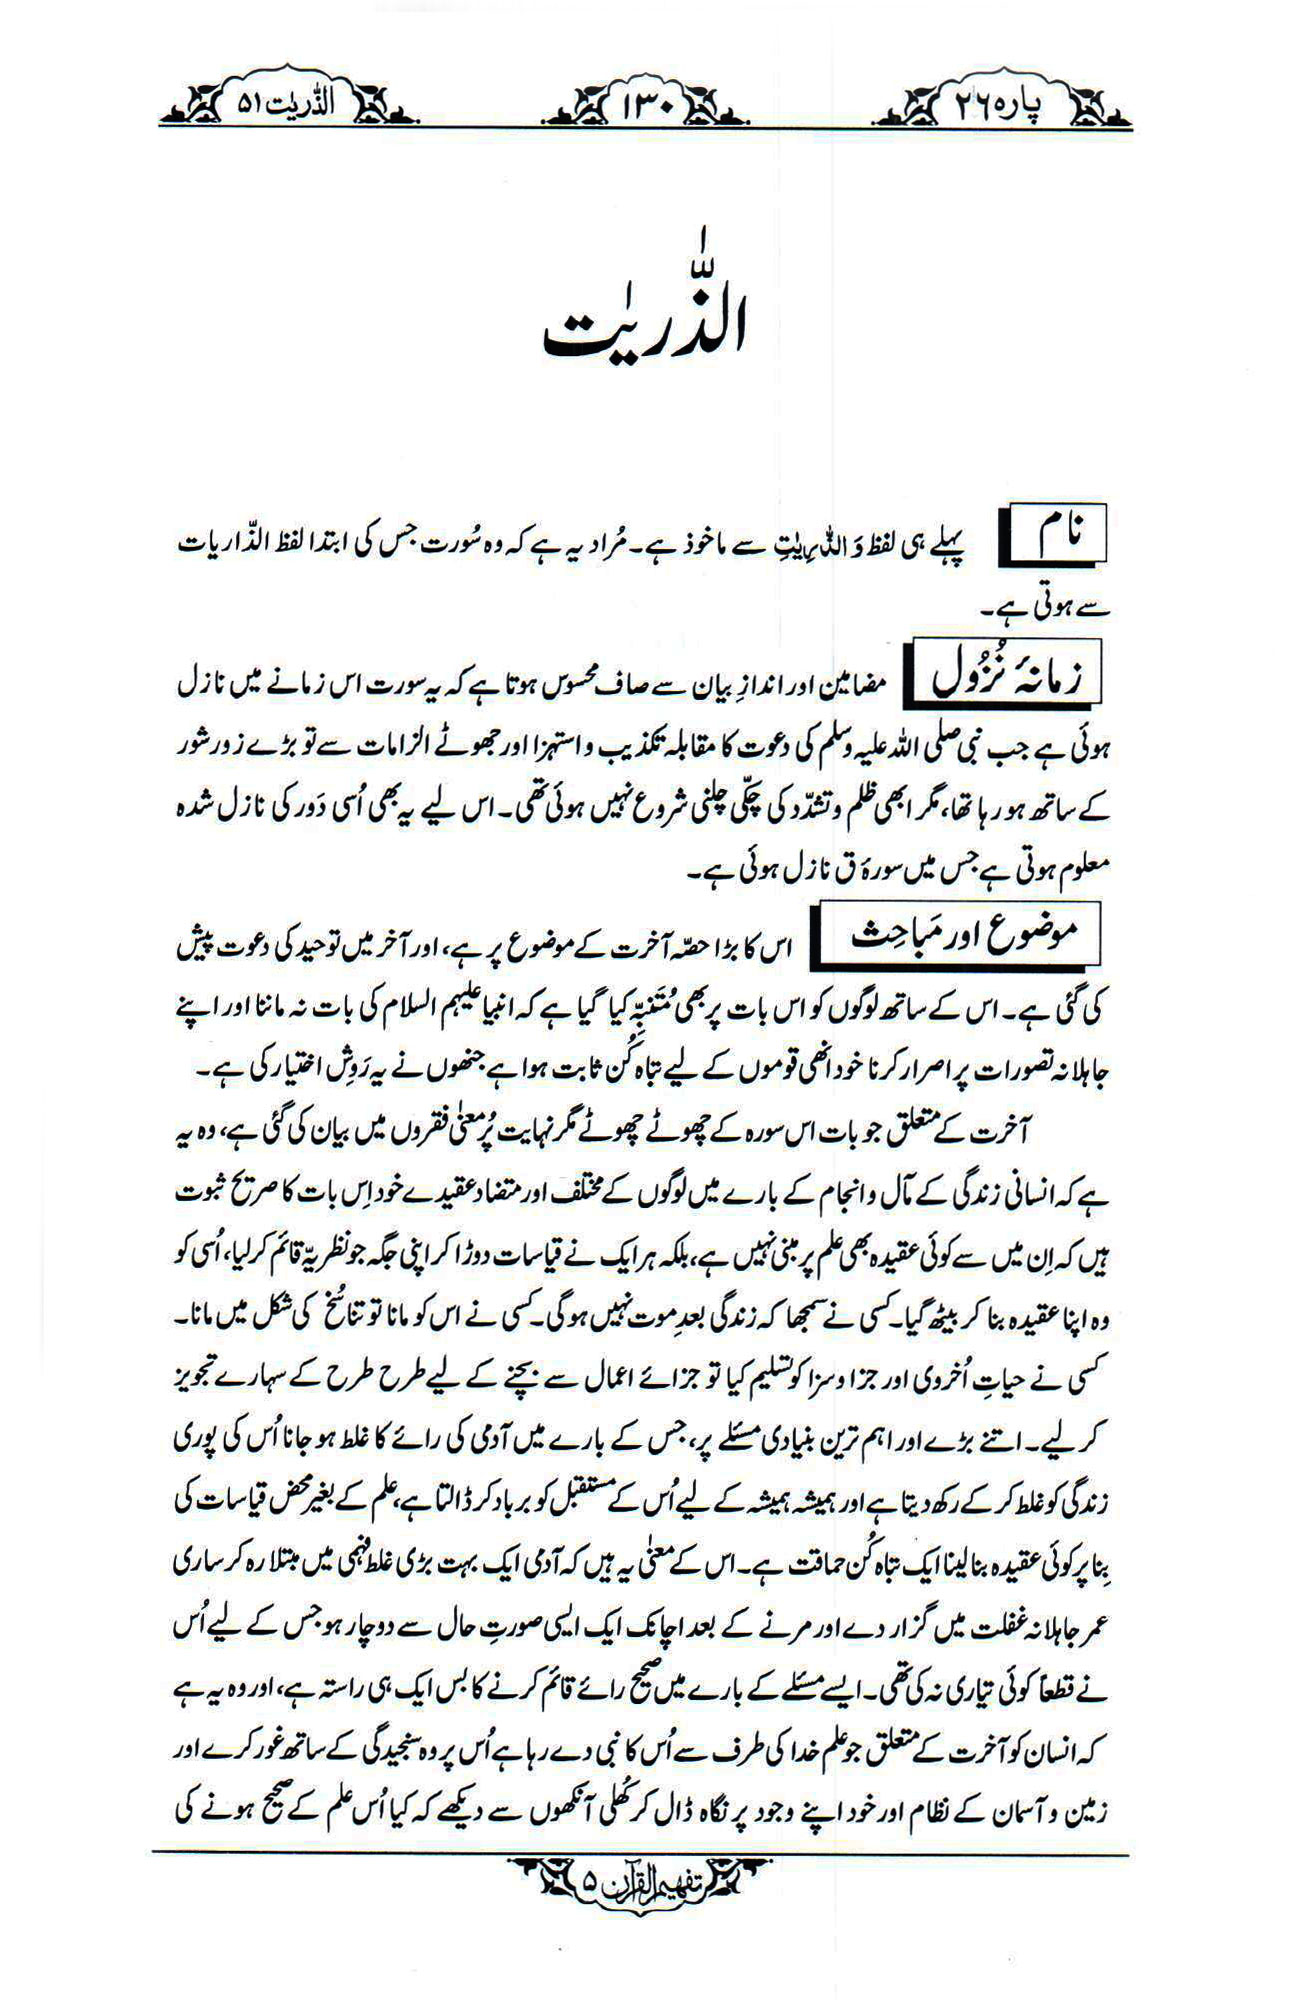 پارہ ۲۶
۱۳۰
الذّریٰت ۵۱
الذّٰریٰت
نام
پہلے ہی لفظ وَالذّٰرِیٰتِ سے ماخوذ ہے۔ مُراد یہ ہے کہ وہ سُورت جس کی ابتدا لفظ الذّاریات
سے ہوتی ہے۔
زمانۂ نُزُول
مضامین اور اندازِ بیان سے صاف محسوس ہوتا ہے کہ یہ سورت اس زمانے میں نازل
ہوئی ہے جب نبی صلی اللہ علیہ وسلم کی دعوت کا مقابلہ تکذیب و استہزا اور جھوٹے الزامات سے تو بڑے زور شور
کے ساتھ ہو رہا تھا، مگر ابھی ظلم و تشدّد کی چکّی چلنی شروع نہیں ہوئی تھی۔ اس لیے یہ بھی اُسی دَور کی نازل شدہ
معلوم ہوتی ہے جس میں سورۂ ق نازل ہوئی ہے۔
موضوع اور مَباحِث
اس کا بڑا حصّہ آخرت کے موضوع پر ہے، اور آخر میں توحید کی دعوت پیش
کی گئی ہے۔ اس کے ساتھ لوگوں کو اس بات پر بھی مُتَنبِّہ کیا گیا ہے کہ انبیا علیہم السلام کی بات نہ ماننا اور اپنے
جاہلانہ تصورات پر اصرار کرنا خود انھی قوموں کے لیے تباہ کُن ثابت ہوا ہے جنھوں نے یہ رَوِش اختیار کی ہے۔
آخرت کے متعلق جو بات اس سورہ کے چھوٹے چھوٹے مگر نہایت پُر معنٰی فقروں میں بیان کی گئی ہے، وہ یہ
ہے کہ انسانی زندگی کے مآل و انجام کے بارے میں لوگوں کے مختلف اور متضاد عقیدے خود اِس بات کا صریح ثبوت
ہیں کہ اِن میں سے کوئی عقیدہ بھی علم پر مبنی نہیں ہے، بلکہ ہر ایک نے قیاسات دوڑا کر اپنی جگہ جو نظریّہ قائم کر لیا، اُسی کو
وہ اپنا عقیدہ بنا کر بیٹھ گیا۔ کسی نے سمجھا کہ زندگی بعدِ موت نہیں ہوگی۔ کسی نے اس کو مانا تو تناسُخ کی شکل میں مانا۔
کسی نے حیاتِ اُخروی اور جزا و سزا کو تسلیم کیا تو جزائے اعمال سے بچنے کے لیے طرح طرح کے سہارے تجویز
کر لیے۔ اتنے بڑے اور اہم ترین بنیادی مسئلے پر، جس کے بارے میں آدمی کی رائے کا غلط ہو جانا اُس کی پوری
زندگی کو غلط کر کے رکھ دیتا ہے اور ہمیشہ ہمیشہ کے لیے اُس کے مستقبل کو برباد کر ڈالتا ہے، علم کے بغیر محض قیاسات کی
بِنا پر کوئی عقیدہ بنا لینا ایک تباہ کُن حماقت ہے۔ اس کے معنٰی یہ ہیں کہ آدمی ایک بہت بڑی غلط فہمی میں مبتلا رہ کر ساری
عمر جاہلانہ غفلت میں گزار دے اور مرنے کے بعد اچانک ایک ایسی صورتِ حال سے دوچار ہو جس کے لیے اُس
نے قطعاً کوئی تیاری نہ کی تھی۔ ایسے مسئلے کے بارے میں صحیح رائے قائم کرنے کا بس ایک ہی راستہ ہے، اور وہ یہ ہے
کہ انسان کو آخرت کے متعلق جو علم خدا کی طرف سے اُس کا نبی دے رہا ہے اُس پر وہ سنجیدگی کے ساتھ غور کرے اور
زمین و آسمان کے نظام اور خود اپنے وجود پر نگاہ ڈال کر کُھلی آنکھوں سے دیکھے کہ کیا اُس علم کے صحیح ہونے کی
تفہیم القرآن ۵